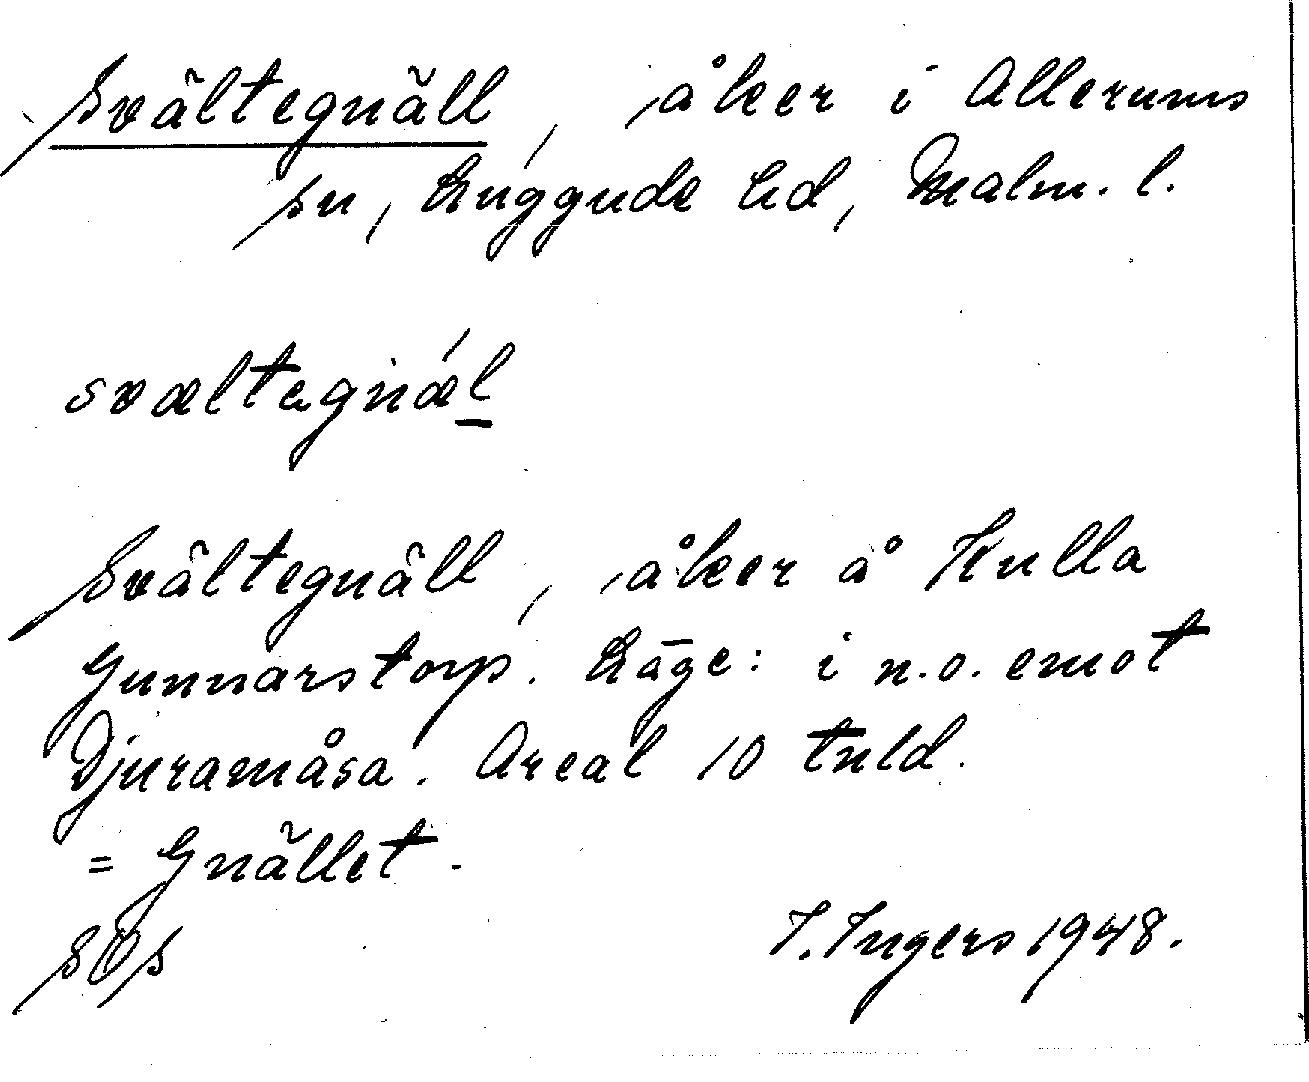 Svältegnäll, åker i Allerums
sn, Luggude hd, Malm. l.
svæltəgnǽl
Svältegnäll, åker å Kulla
Gunnarstorp. Läge: i n.o. emot
Djuramåsa. Areal 10 tnld.
= Gnället.
I. Ingers 1948.